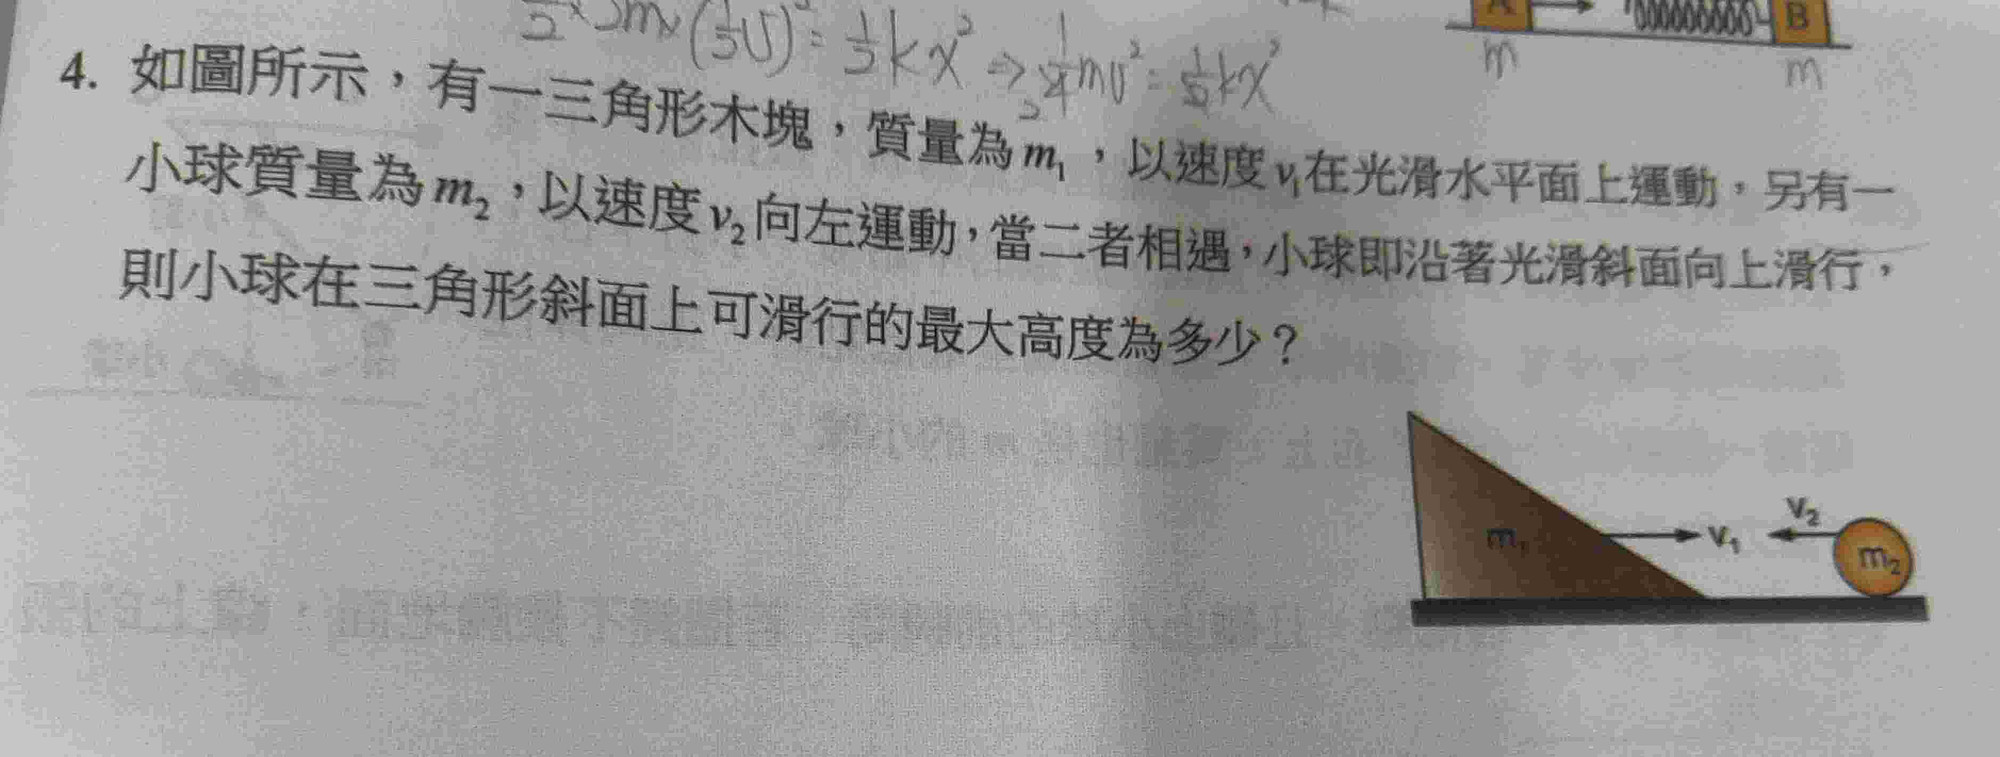 A
B
m
m
4. 如圖所示，有一三角形木塊，質量為m₁，以速度v₁在光滑水平面上運動，另有一
小球質量為m₂，以速度v₂向左運動，當二者相遇，小球即沿著光滑斜面向上滑行，
則小球在三角形斜面上可滑行的最大高度為多少？
m₁
V₁
V₂
m₂